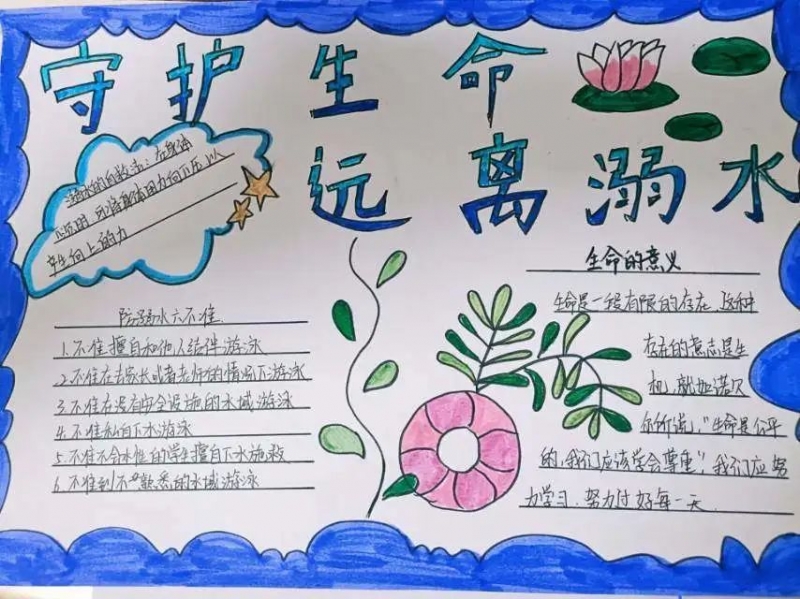 守护生命
远离溺水
溺水的自救法：在身体
下沉时，可将身体用力向下压，以
产生向上的力
防溺水六不准
1.不准擅自和他人结伴游泳
2.不准在无家长或者老师的情况下游泳
3.不准在没有安全设施的水域游泳
4.不准私自下水游泳
5.不准不会水性的学生擅自下水施救
6.不准到不熟悉的水域游泳
生命的意义
生命是一段有限的存在，这种
存在的意志是生
机，就如诺贝
尔所说，"生命是公平
的，我们应该学会尊重"，我们应努
力学习，努力过好每一天